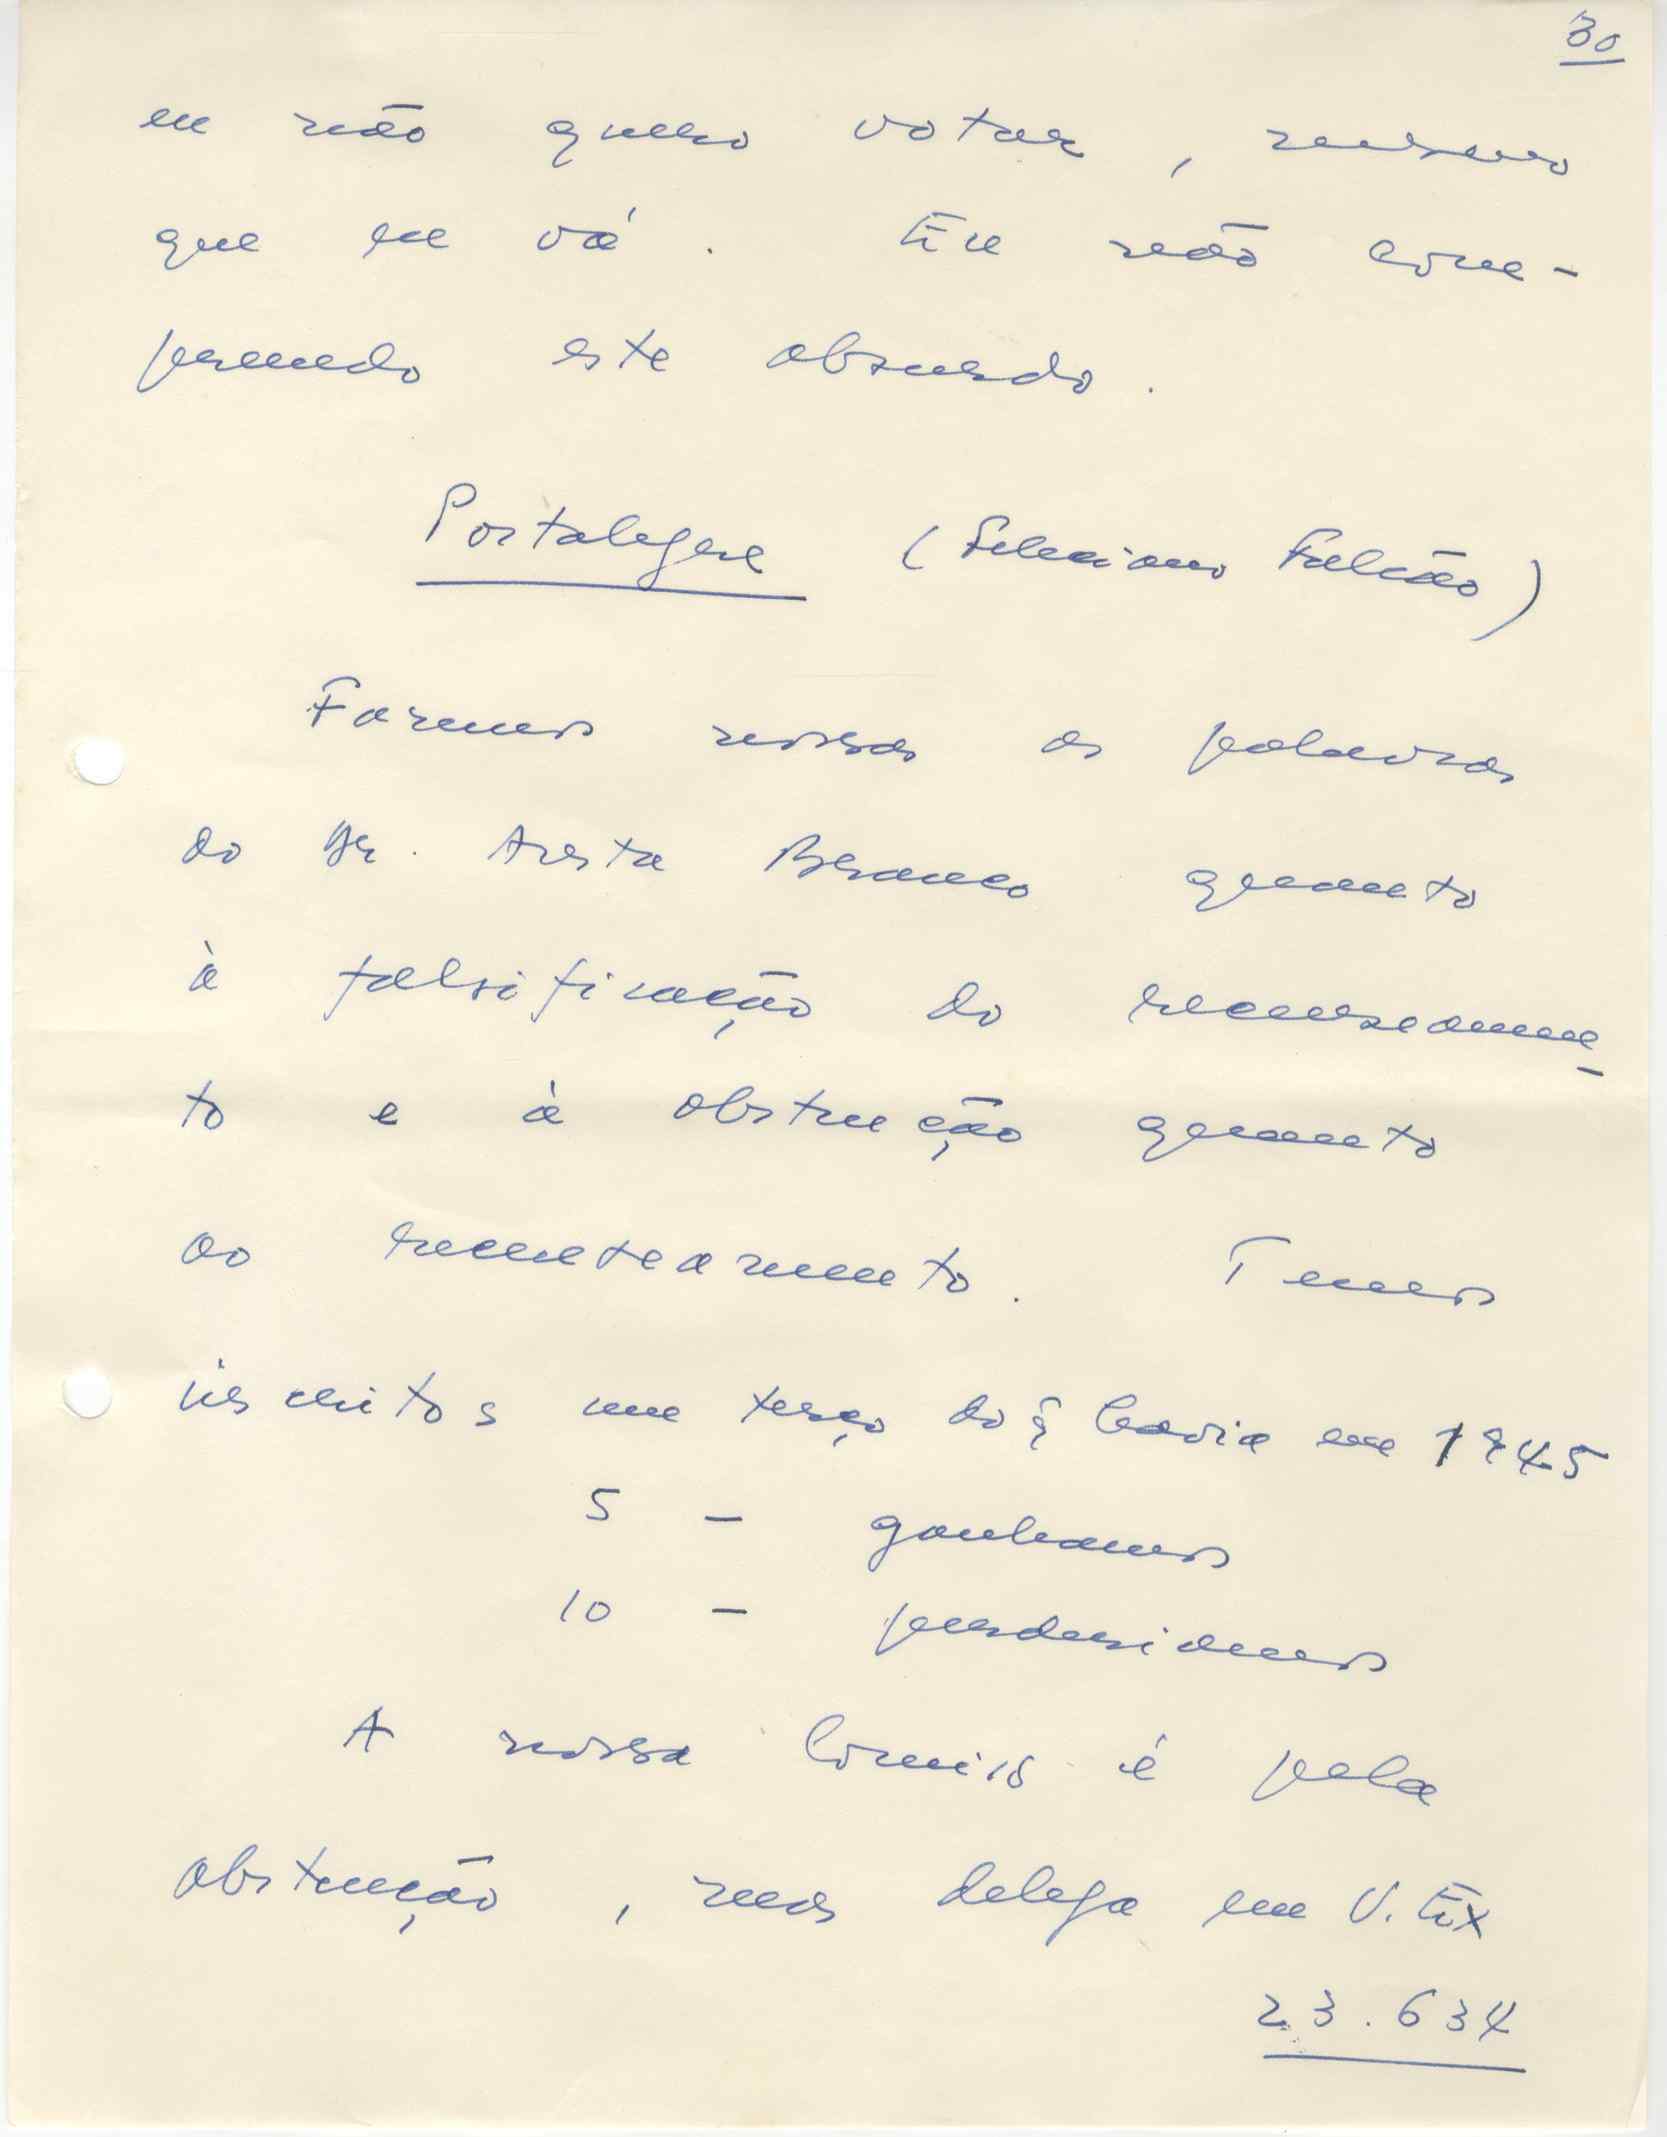 30
eu não quero votar, mesmo
que eu vá. Eu não com-
preendo este absurdo.
Portalegre (Feliciano Falcão)
Faremos nossas as palavras
do Dr. Aresta Branco quanto
à falsificação do recenseamen-
to e à obstrução quanto
ao recenseamento. Temos
inscritos um terço do q̃ havia em 1945
5 - ganhamos
10 - perderiamos
A nossa Comis é pela
obstrução, mas delega em V. Ex
23.634